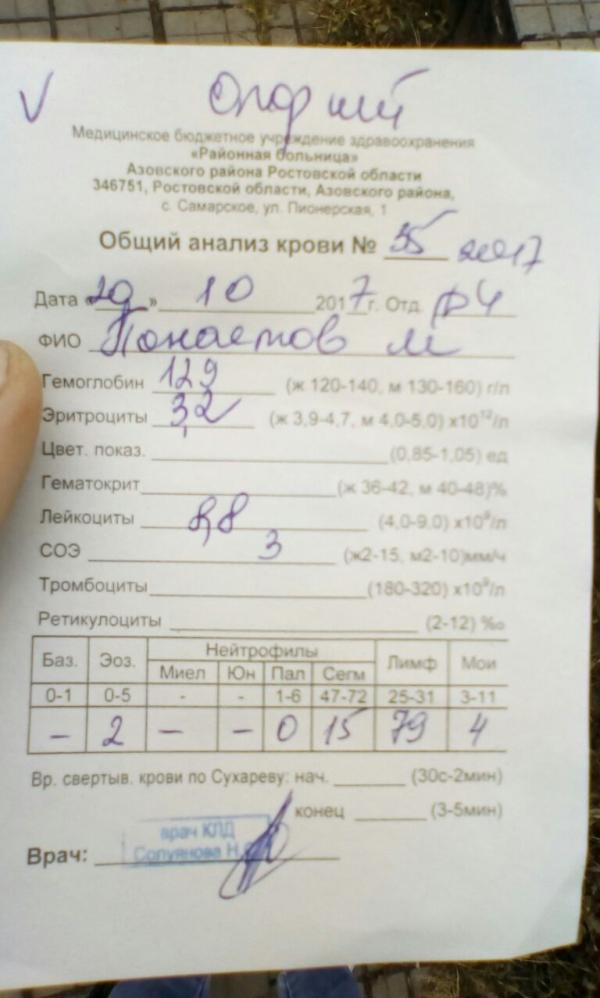 V
Медицинское бюджетное учреждение здравоохранения
«Районная больница»
Азовского района Ростовской области
346751, Ростовской области, Азовского района,
с. Самарское, ул. Пионерская, 1
Общий анализ крови № 35 2017
Дата «20» 10 2017г. Отд.
ФИО М
Гемоглобин 129 (ж 120-140, м 130-160) г/л
Эритроциты 3,2 (ж 3,9-4,7, м 4,0-5,0) х10¹²/л
Цвет. показ. (0,85-1,05) ед
Гематокрит (ж 36-42, м 40-48)%
Лейкоциты 8,8 (4,0-9,0) х10⁹/л
СОЭ 3 (ж2-15, м2-10)мм/ч
Тромбоциты (180-320) х10⁹/л
Ретикулоциты (2-12) ‰
Баз. Эоз. Нейтрофилы Лимф Мои
Миел Юн Пал Сегм
0-1 0-5 - - 1-6 47-72 25-31 3-11
– 2 – – 0 15 79 4
Вр. свертыв. крови по Сухареву: нач. (30с-2мин)
конец (3-5мин)
врач КЛД
Врач: